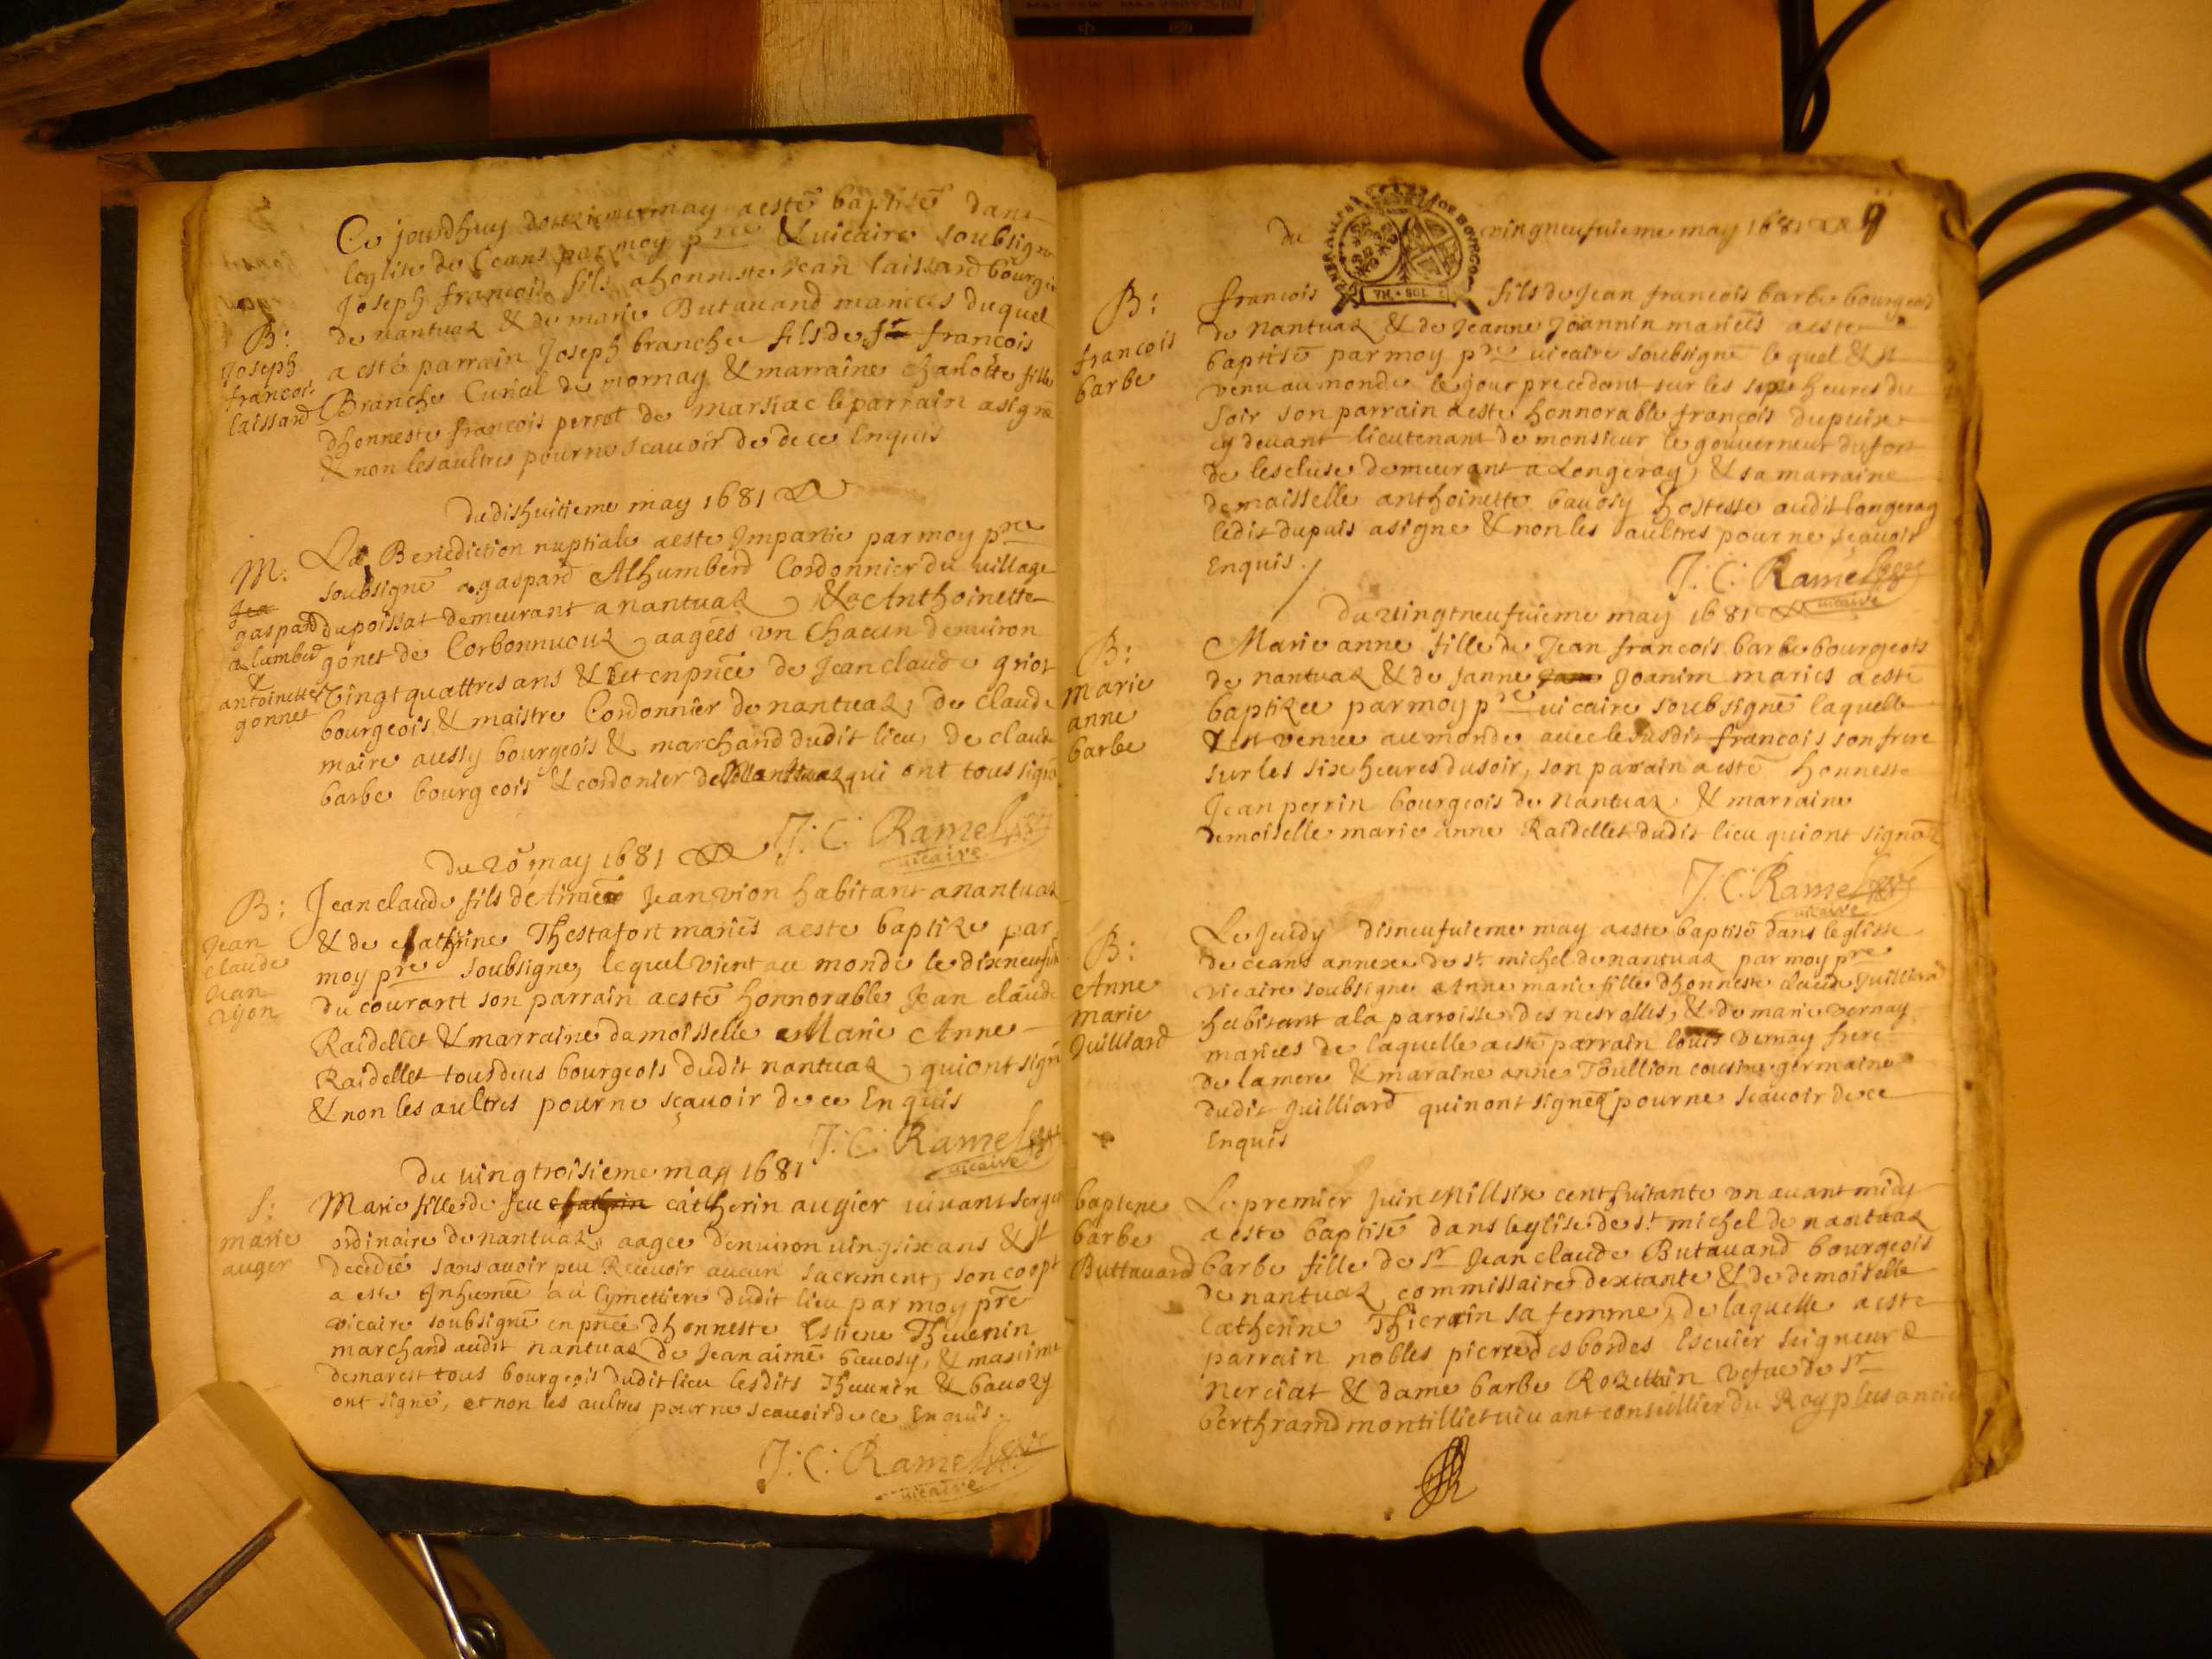 Ce jourdhuy douzieme may a esté baptisé dans
leglise de ceans par moy pre & vicaire soubsigné
Joseph francois fils a honneste Jean laissard bourgeois
B: de nantuaz & de marie Butauand mariees duquel
Joseph a esté parrain Joseph branche fils de francois
francois Branche Curial de mornay & marraine charlotte fille
laissard dhonneste francois perrot de marsiac le parrain a signé
& non les aultres pour ne scauoir de de ce Enquis
du dishuitieme may 1681
M. La Benediction nuptiale a este Impartie par moy pre
soubsigné a gaspard Alhumberd Cordonnier du uillage
gaspard du poissat demeurant a nantuaz & a Anthoinette
alumberd gonet de Corbonnuouz aagées un chacun denuiron
& antoinette Vingt quattres ans & cet en pnce de Jean claude griot
gonnet bourgeois & maistre Cordonnier de nantuaz, de claude
maire aussy bourgeois & marchand dudit lieu, de claude
barbe bourgeois & cordonier de Nantuaz qui ont tous signé
J: C: Ramel
uicaire
Du 20 may 1681
B: Jean claude fils de Aimé Jean vion habitant a nantuaz
Jean & de Cathrine Thestafort mariés a este baptize par
claude moy pre soubsigné, lequel vient au monde le dixneufui
Jean du courant son parrain a esté honnorable Jean claude
vion Raidellet & marraine damoisselle Marie Anne
Raidellet tous deus bourgeois dudit nantuaz, qui ont signé
& non les aultres pour ne sçauoir de ce Enquis
J: C: Ramel
uicaire
Du uingtroisieme may 1681
S: Marie fille de feu cathrin catherin augier uiuant sergent
marie ordinaire de nantuaz, aagee denuiron uingsix ans & st
auger decedée sans auoir peu Receuoir aucun sacrement, son corpt
a este Inhumée au Cymettiere dudit lieu par moy pre
vicaire soubsigné en pnce dhonneste Estiene Theuenin
marchand audit nantuaz de Jean aimé bauosy, & maxime
demarest tous bourgeois dudit lieu lesdits Theuenin & bauozy
ont signé, et non les aultres pour ne scauoir de ce Enquis.
J: C: Ramel
uicaire
9
du vingneufuieme may 1681
B: francois fils de Jean francois barbe bourgeois
francois de Nantuaz & de Jeanne Joannin mariés a este
barbe baptisé par moy pre uicaire soubsigné lequel est
venu au monde le jour precedant sur les sixe heures du
soir son parrain a este honnorable françois dupuix
cy deuant lieutenant de monsieur le gouuerneur du fort
de lescluse demeurant a Longeray, & sa marraine
demaisselle anthoinette bauosy hostesse audit longeray
ledit dupuis a signe & non les aultres pour ne sçauoir
Enquis.
J: C: Ramel
uicaire
Du uingtneufuieme may 1681
B: Marie anne fille de Jean francois barbe bourgeois
marie de nantuaz & de Janne Joanim mariés a esté
anne baptizee par moy pre uicaire soubsigné laquelle
barbe est venue au monde auec le susdit francois son frere
sur les sixe heures du soir, son parrain a esté honneste
Jean perrin bourgeois de Nantuaz & marraine
demoiselle marie anne Raidellet dudit lieu qui ont signéz
J: C: Ramel
uicaire
B: Le Jeudy disneufuieme may a este baptisé dans leglisse
Anne de ceans annexe de st michel de nantuaz par moy pre
marie vicaire soubsigne Anne marie fille dhonneste claude Juilliard
Juilliard habitant a la parroisse des neyrolles, & de marie vernay
mariees de laquelle a esté parrain louis vernay frere
de la mere & maraine anne Toullion cousine germaine
dudit Juilliard qui nont signez pour ne scauoir de ce
Enquis
bapteme Le premier Juin Mill sixe cent huitante un auant midy
barbe a este baptisé dans leglise de st michel de nantuaz
Buttauard barbe fille de sr Jean claude Butauand bourgeois
de nantuaz, commissaire dextante & de demoiselle
Catherine Thierrin sa femme, de laquelle a este
parrain nobles pierre desbordes Escuier seigneur d
Nerciat & dame barbe Rozettain vefue de sr
berthramd montilliet uiuant conseillier du Roy plus ancie